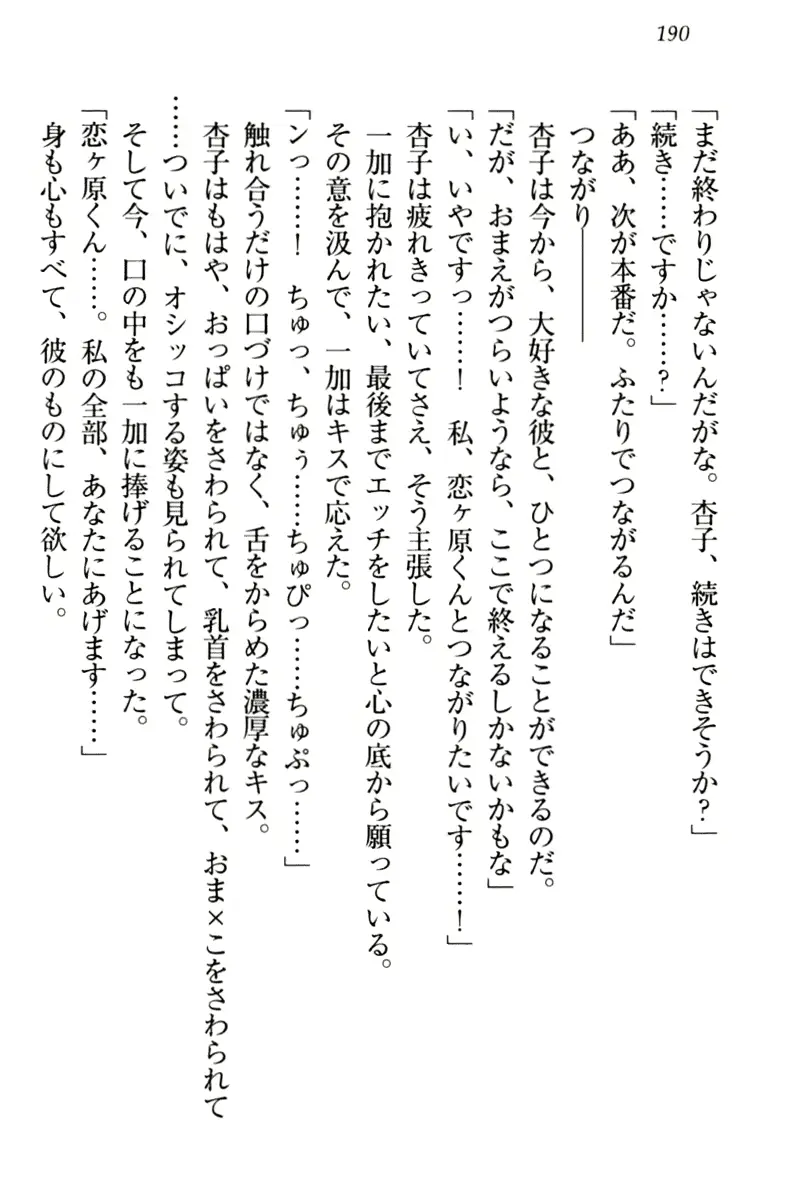 190
「まだ終わりじゃないんだがな。杏子、続きはできそうか?」
「続き……ですか……?」
「ああ、次が本番だ。ふたりでつながるんだ」
つながり――――
杏子は今から、大好きな彼と、ひとつになることができるのだ。
「だが、おまえがつらいようなら、ここで終えるしかないかもな」
「い、いやですっ……! 私、恋ヶ原くんとつながりたいです……!」
杏子は疲れきっていてさえ、そう主張した。
一加に抱かれたい、最後までエッチをしたいと心の底から願っている。
その意を汲んで、一加はキスで応えた。
「ンっ……! ちゅっ、ちゅぅ……ちゅぴっ……ちゅぷっ……」
触れ合うだけの口づけではなく、舌をからめた濃厚なキス。
杏子はもはや、おっぱいをさわられて、乳首をさわられて、おま×こをさわられて
……ついでに、オシッコする姿も見られてしまって。
そして今、口の中をも一加に捧げることになった。
「恋ヶ原くん……。私の全部、あなたにあげます……」
身も心もすべて、彼のものにして欲しい。